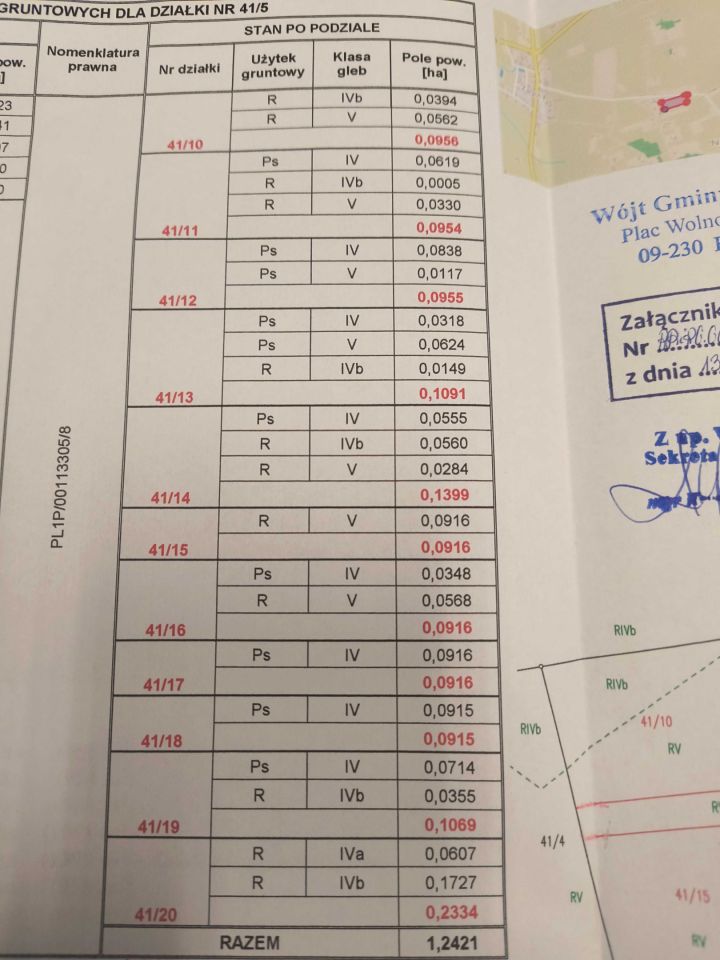 GRUNTOWYCH DLA DZIAŁKI NR 41/5
STAN PO PODZIALE
Nomenklatura prawna
Nr działki
Użytek gruntowy
Klasa gleb
Pole pow. [ha]
PL1P/00113305/8
R IVb 0,0394
R V 0,0562
41/10 0,0956
Ps IV 0,0619
R IVb 0,0005
R V 0,0330
41/11 0,0954
Ps IV 0,0838
Ps V 0,0117
41/12 0,0955
Ps IV 0,0318
Ps V 0,0624
R IVb 0,0149
41/13 0,1091
Ps IV 0,0555
R IVb 0,0560
R V 0,0284
41/14 0,1399
R V 0,0916
41/15 0,0916
Ps IV 0,0348
R V 0,0568
41/16 0,0916
Ps IV 0,0916
41/17 0,0916
Ps IV 0,0915
41/18 0,0915
Ps IV 0,0714
R IVb 0,0355
41/19 0,1069
R IVa 0,0607
R IVb 0,1727
41/20 0,2334
RAZEM 1,2421
Wójt Gminy
Plac Wolno
09-230
Załącznik
Nr
z dnia 13
Z up. W
Sekreta
RIVb
RIVb
RIVb
41/10
RV
41/4
RV
41/15
RV